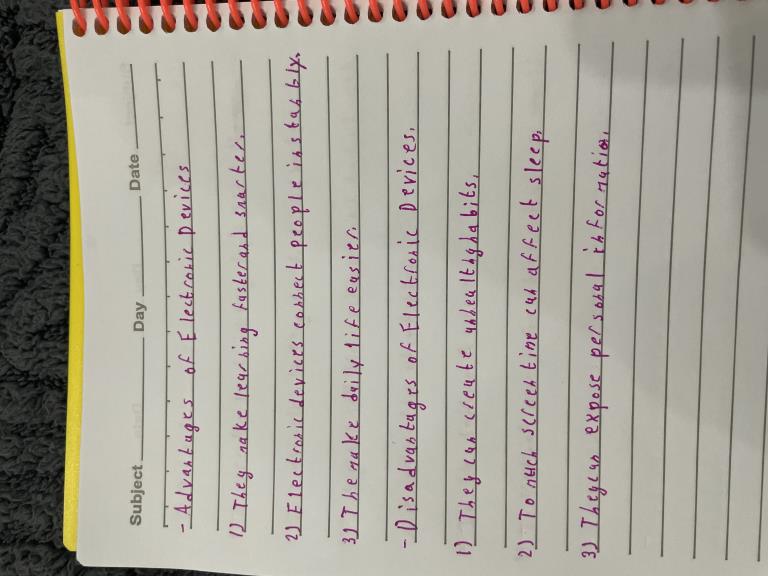 Subject Day Date
- Advantages of Electronic Devices
1) They make learning faster and smarter.
2) Electronic devices connect people instantly.
3) The make daily life easier.
- Disadvantages of Electronic Devices.
1) They can create unhealthy habits.
2) To much screen time can affect sleep.
3) They can expose personal information.